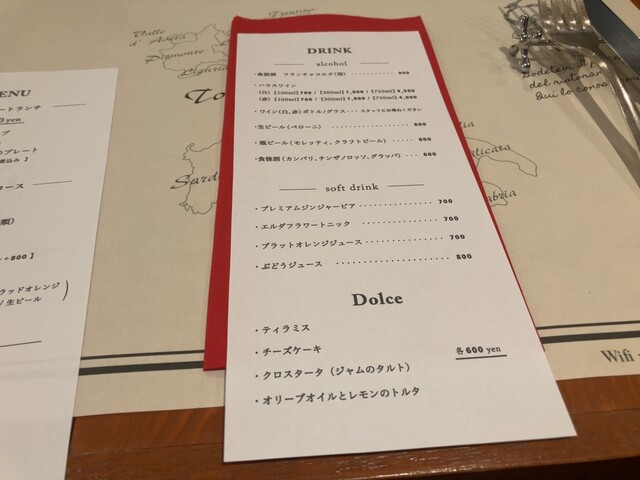 DRINK
alcohol
・食前酒 フランチャコルタ(泡) ............ 900
・ハウスワイン
(白)【100ml】700 /【300ml】1,900 /【750ml】4,500
(赤)【100ml】700 /【300ml】1,900 /【750ml】4,500
・ワイン(白、赤)ボトル/グラス・・・スタッフにお尋ねください
・生ビール(ペローニ) .................. 800
・瓶ビール(モレッティ、クラフトビール) ...... 800
・食後酒(カンパリ、チンザノロッソ、グラッパ) ... 600
soft drink
・プレミアムジンジャービア ............... 700
・エルダフラワートニック ............... 700
・ブラットオレンジジュース ............... 700
・ぶどうジュース .................... 800
Dolce
・ティラミス
・チーズケーキ
各600 yen
・クロスタータ(ジャムのタルト)
・オリーブオイルとレモンのトルタ
MENU
ートランチ
yen
プレート
コース
+800】
ラッドオレンジ
/ 生ビール
Trentino
Valle
d' Aosta
Piemonte
Liguria
Sard
Godetevi il
del ristoran
Qui lo cono
ilicata
abria
Wifi